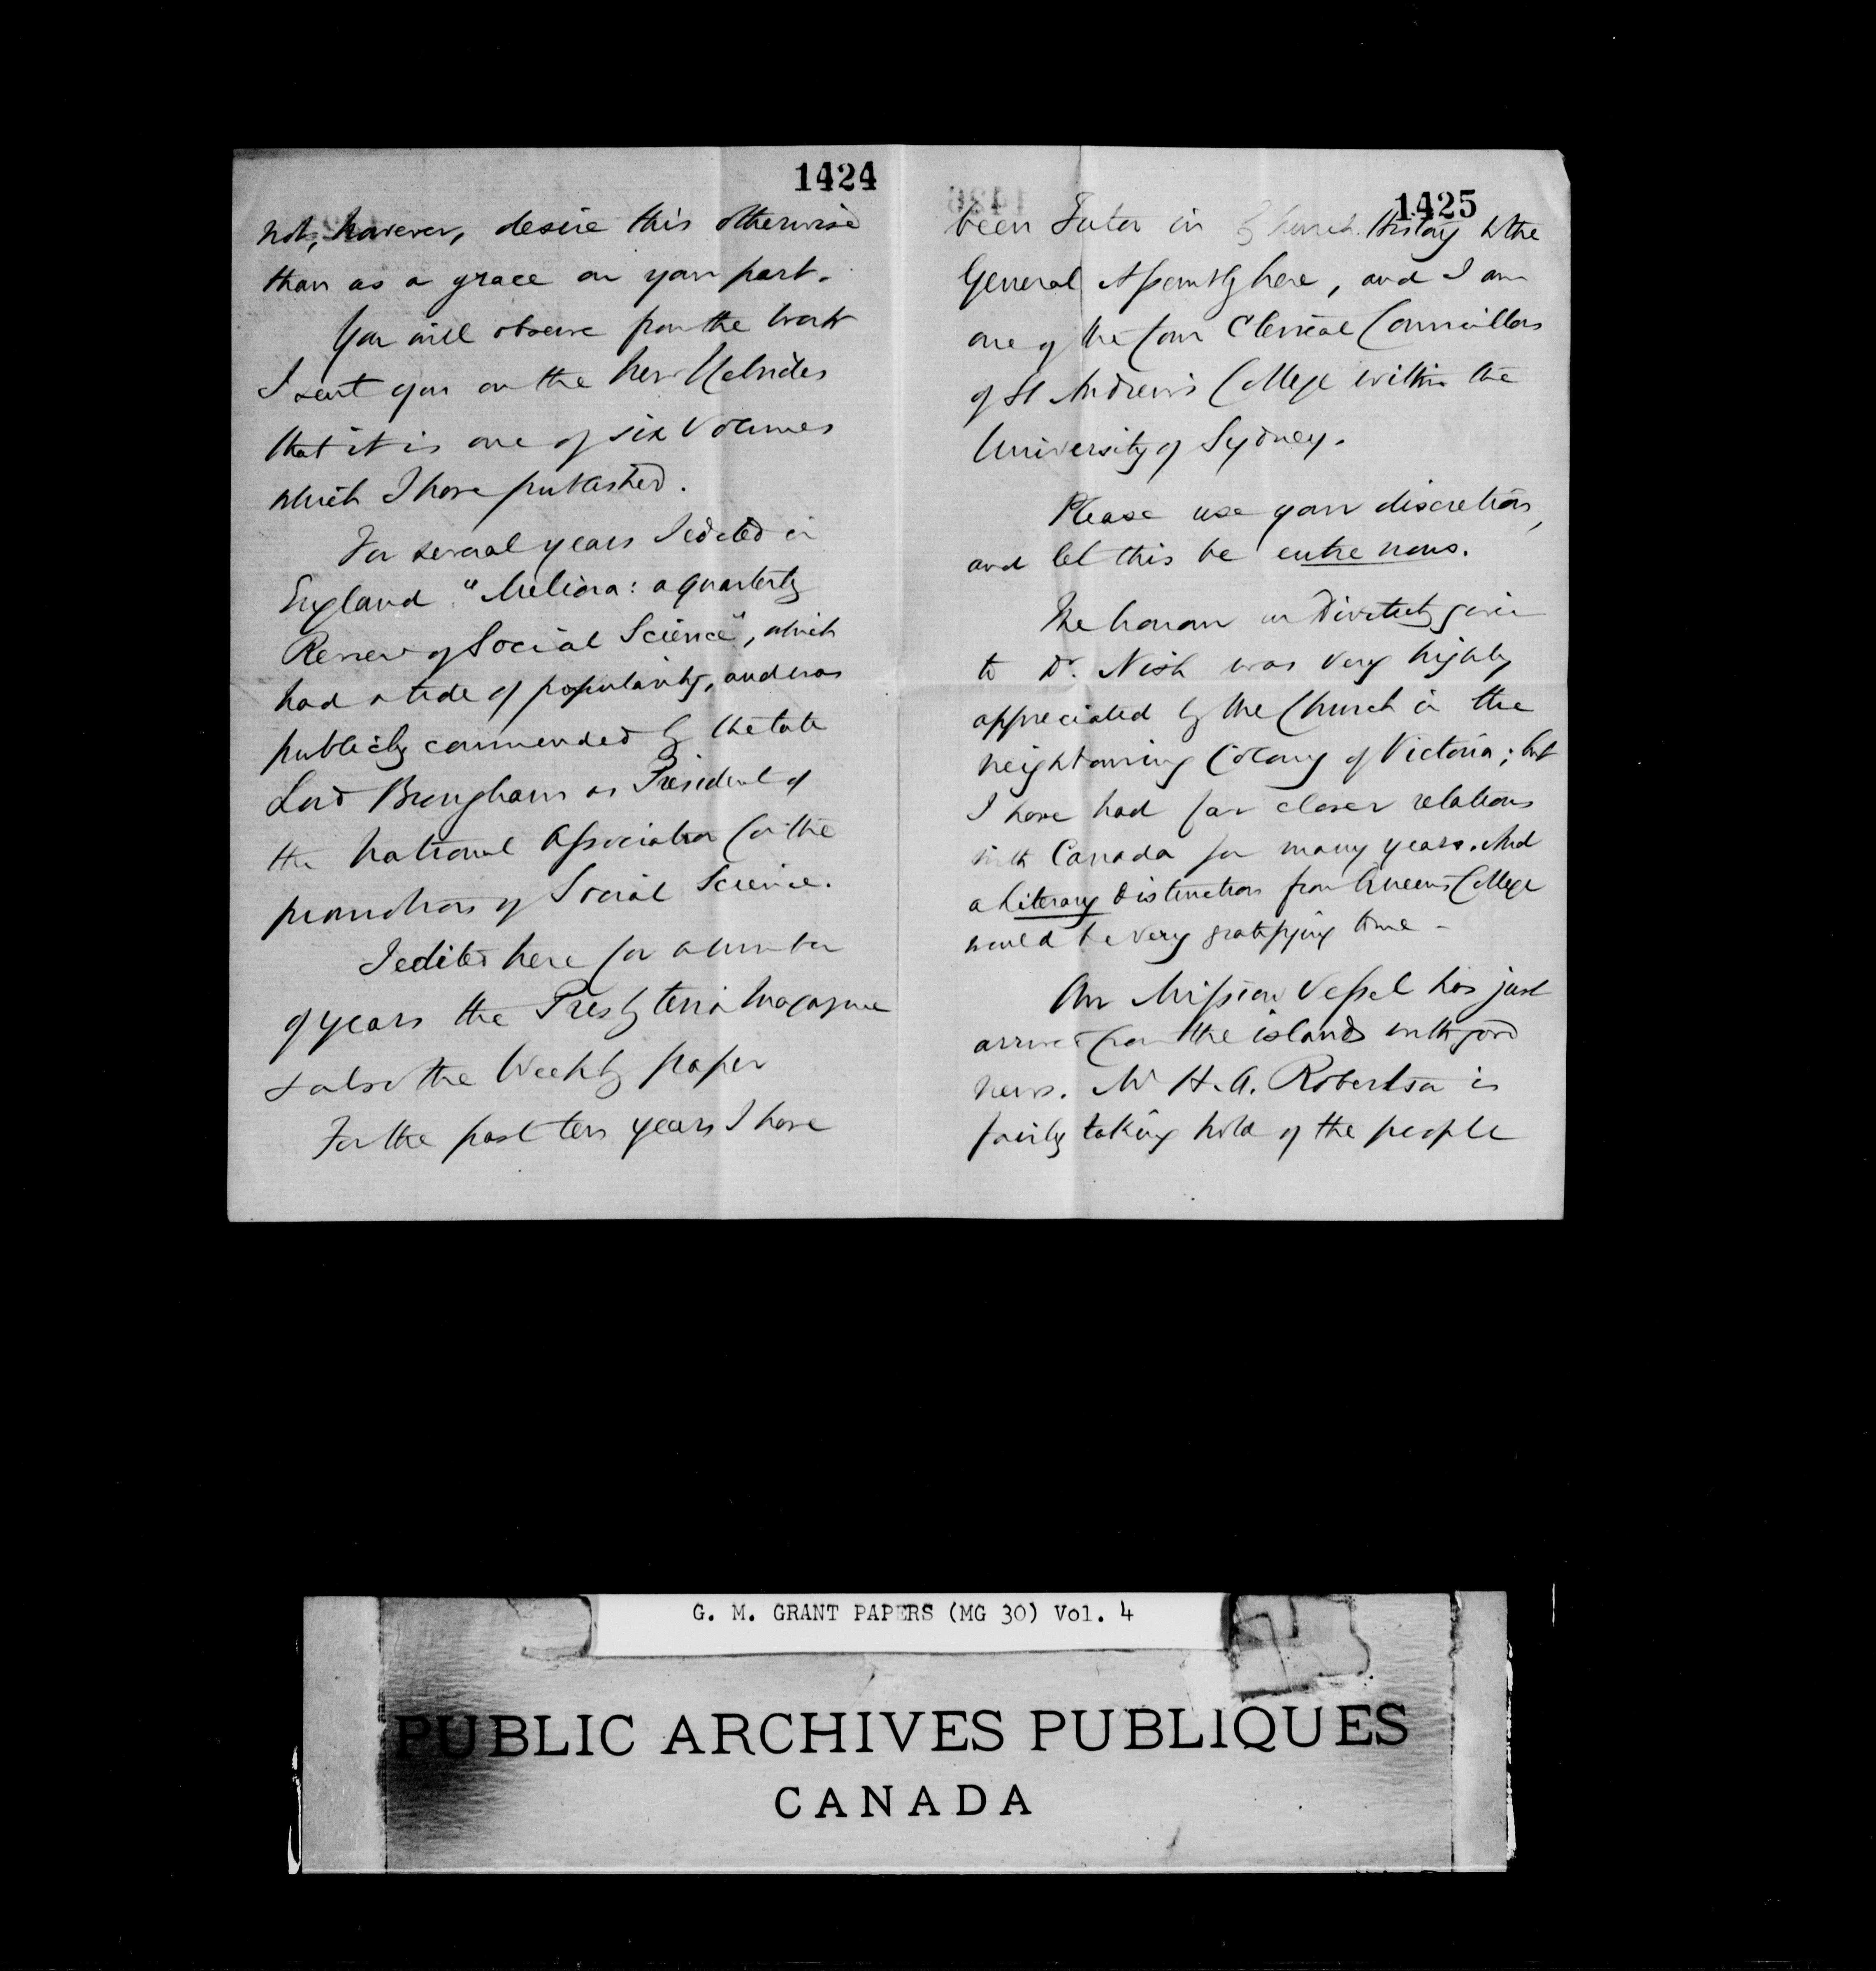 1424
not, however, desire this otherwise
than as a grace on your part.
You will observe from the work
I sent you on the New Hebrides
that it is one of six volumes
which I have published.
For several years I edited in
England "Meliora: a quarterly
Review of Social Science", which
had a tide of popularity, and was
publicly commended by the late
Lord Brougham as President of
the National Association for the
promotion of Social Science.
I edited here for a number
of years the Presbyterian Magazine
& also the Weekly paper
For the past ten years I have
1425
been Tutor in Church History to the
General Assembly here, and I am
one of the four Clerical Councillors
of St Andrew's College within the
University of Sydney.
Please use your discretion,
and let this be entre nous.
The honour in Divinity given
to Dr. Nish was very highly
appreciated by the Church in the
neighbouring Colony of Victoria; but
I have had far closer relations
with Canada for many years. And
a Literary distinction from Queen's College
would be very gratifying to me -
Our Mission Vessel has just
arrived from the islands with good
news. Mr H. A. Robertson is
fairly taking hold of the people
G. M. GRANT PAPERS (MG 30) Vol. 4
PUBLIC ARCHIVES PUBLIQUES
CANADA